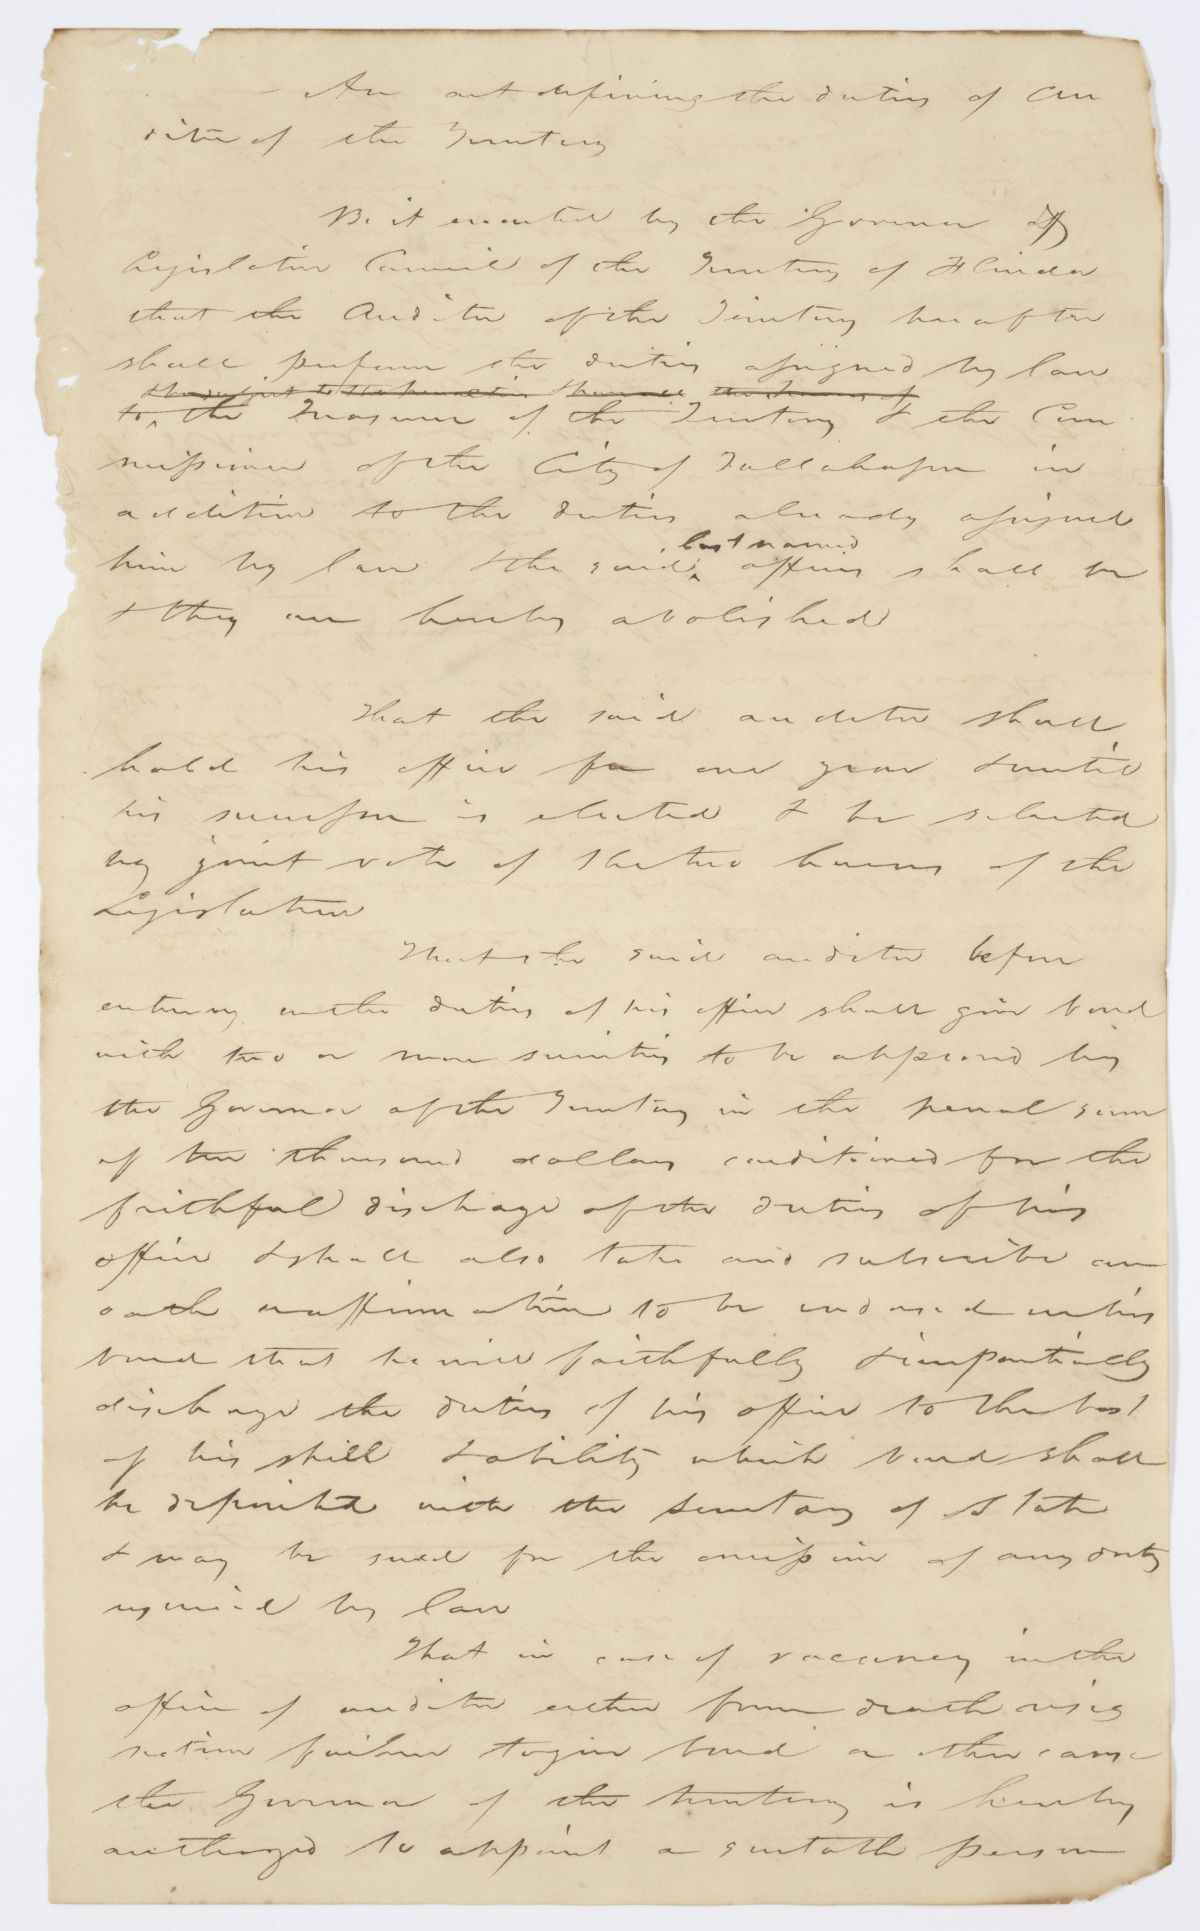 An act defining the duties of Au
ditor of the Territory
Be it enacted by the Governor &
Legislative Council of the Territory of Florida
that the Auditor of the Territory hereafter
shall perform the duties assigned by law
to the Treasurer of the Territory & the Com
missioner of the City of Tallahassee in
addition to the duties already assigned
him by law & the said last named offices shall be
& they are hereby abolished
That the said auditor shall
hold his office for one year & until
his successor is elected & be selected
by joint vote of the two houses of the
Legislature
That the said auditor before
entering on the duties of his office shall give bond
with two or more sureties to be approved by
the Governor of the Territory in the penal sum
of ten thousand dollars conditioned for the
faithful discharge of the duties of his
office & shall also take and subscribe an
oath or affirmation to be endorsed on his
bond that he will faithfully & impartially
discharge the duties of his office to the best
of his skill & ability which bond shall
be deposited with the Secretary of State
& may be sued for the omission of any duty
required by law
That in case of vacancy in the
office of auditor either from death resig
nation failure to give bond or other cause
the Governor of the Territory is hereby
authorized to appoint a suitable person